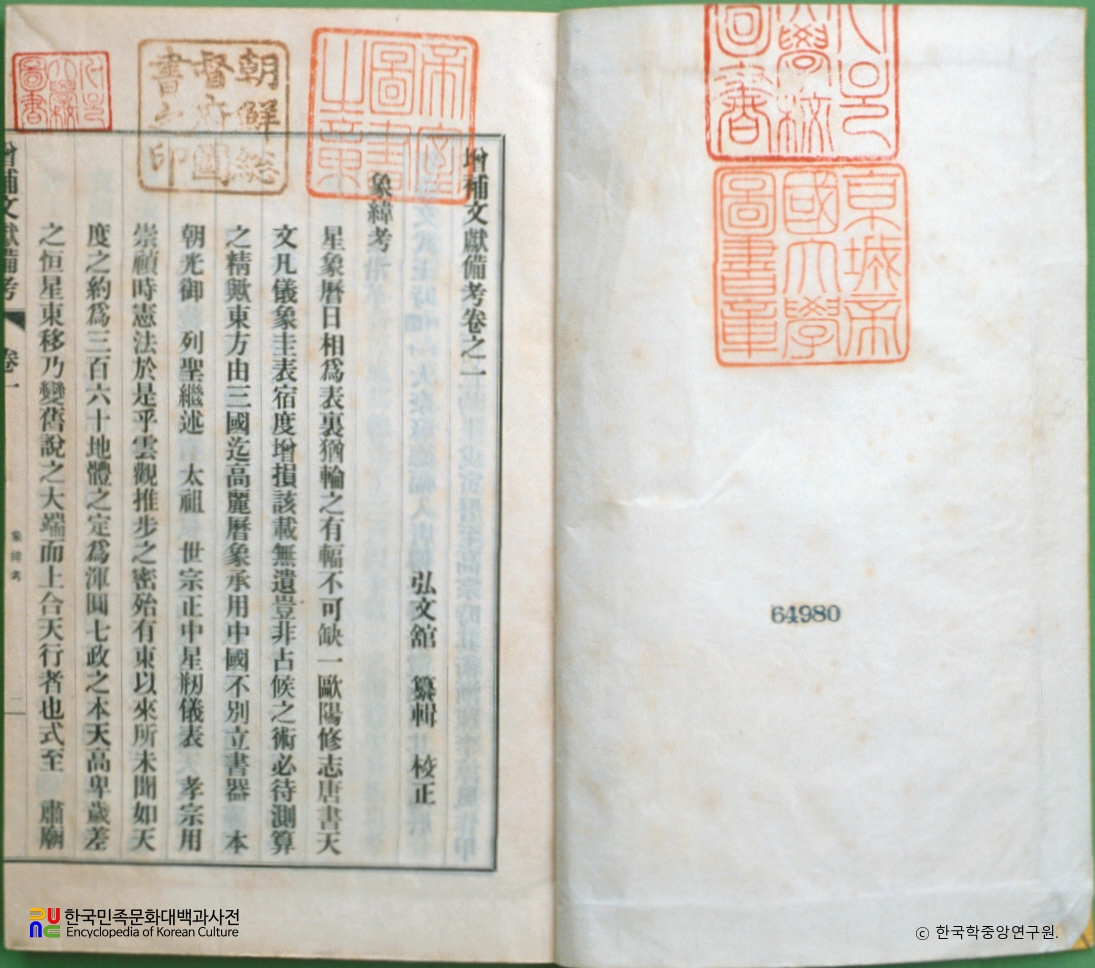 京城帝
國大學
圖書章
64980
帝室
圖書
之章
朝鮮總
督府圖
書之印
增補文獻備考卷之一
象緯考
弘文舘 纂輯 校正
星象曆日相爲表裏猶輪之有輻不可缺一歐陽修志唐書天
文凡儀象圭表宿度增損該載無遺豈非占候之術必待測算
之精歟東方由三國迄高麗曆象承用中國不別立書器 本
朝光御 列聖繼述 太祖 世宗正中星刱儀表 孝宗用
崇禎時憲法於是乎雲觀推步之密殆有東以來所未聞如天
度之約爲三百六十地體之定爲渾圓七政之本天高卑歲差
之恒星東移乃變舊說之大端而上合天行者也式至 肅廟
增補文獻備考 卷一 象緯考 一
한국민족문화대백과사전
Encyclopedia of Korean Culture
© 한국학중앙연구원.